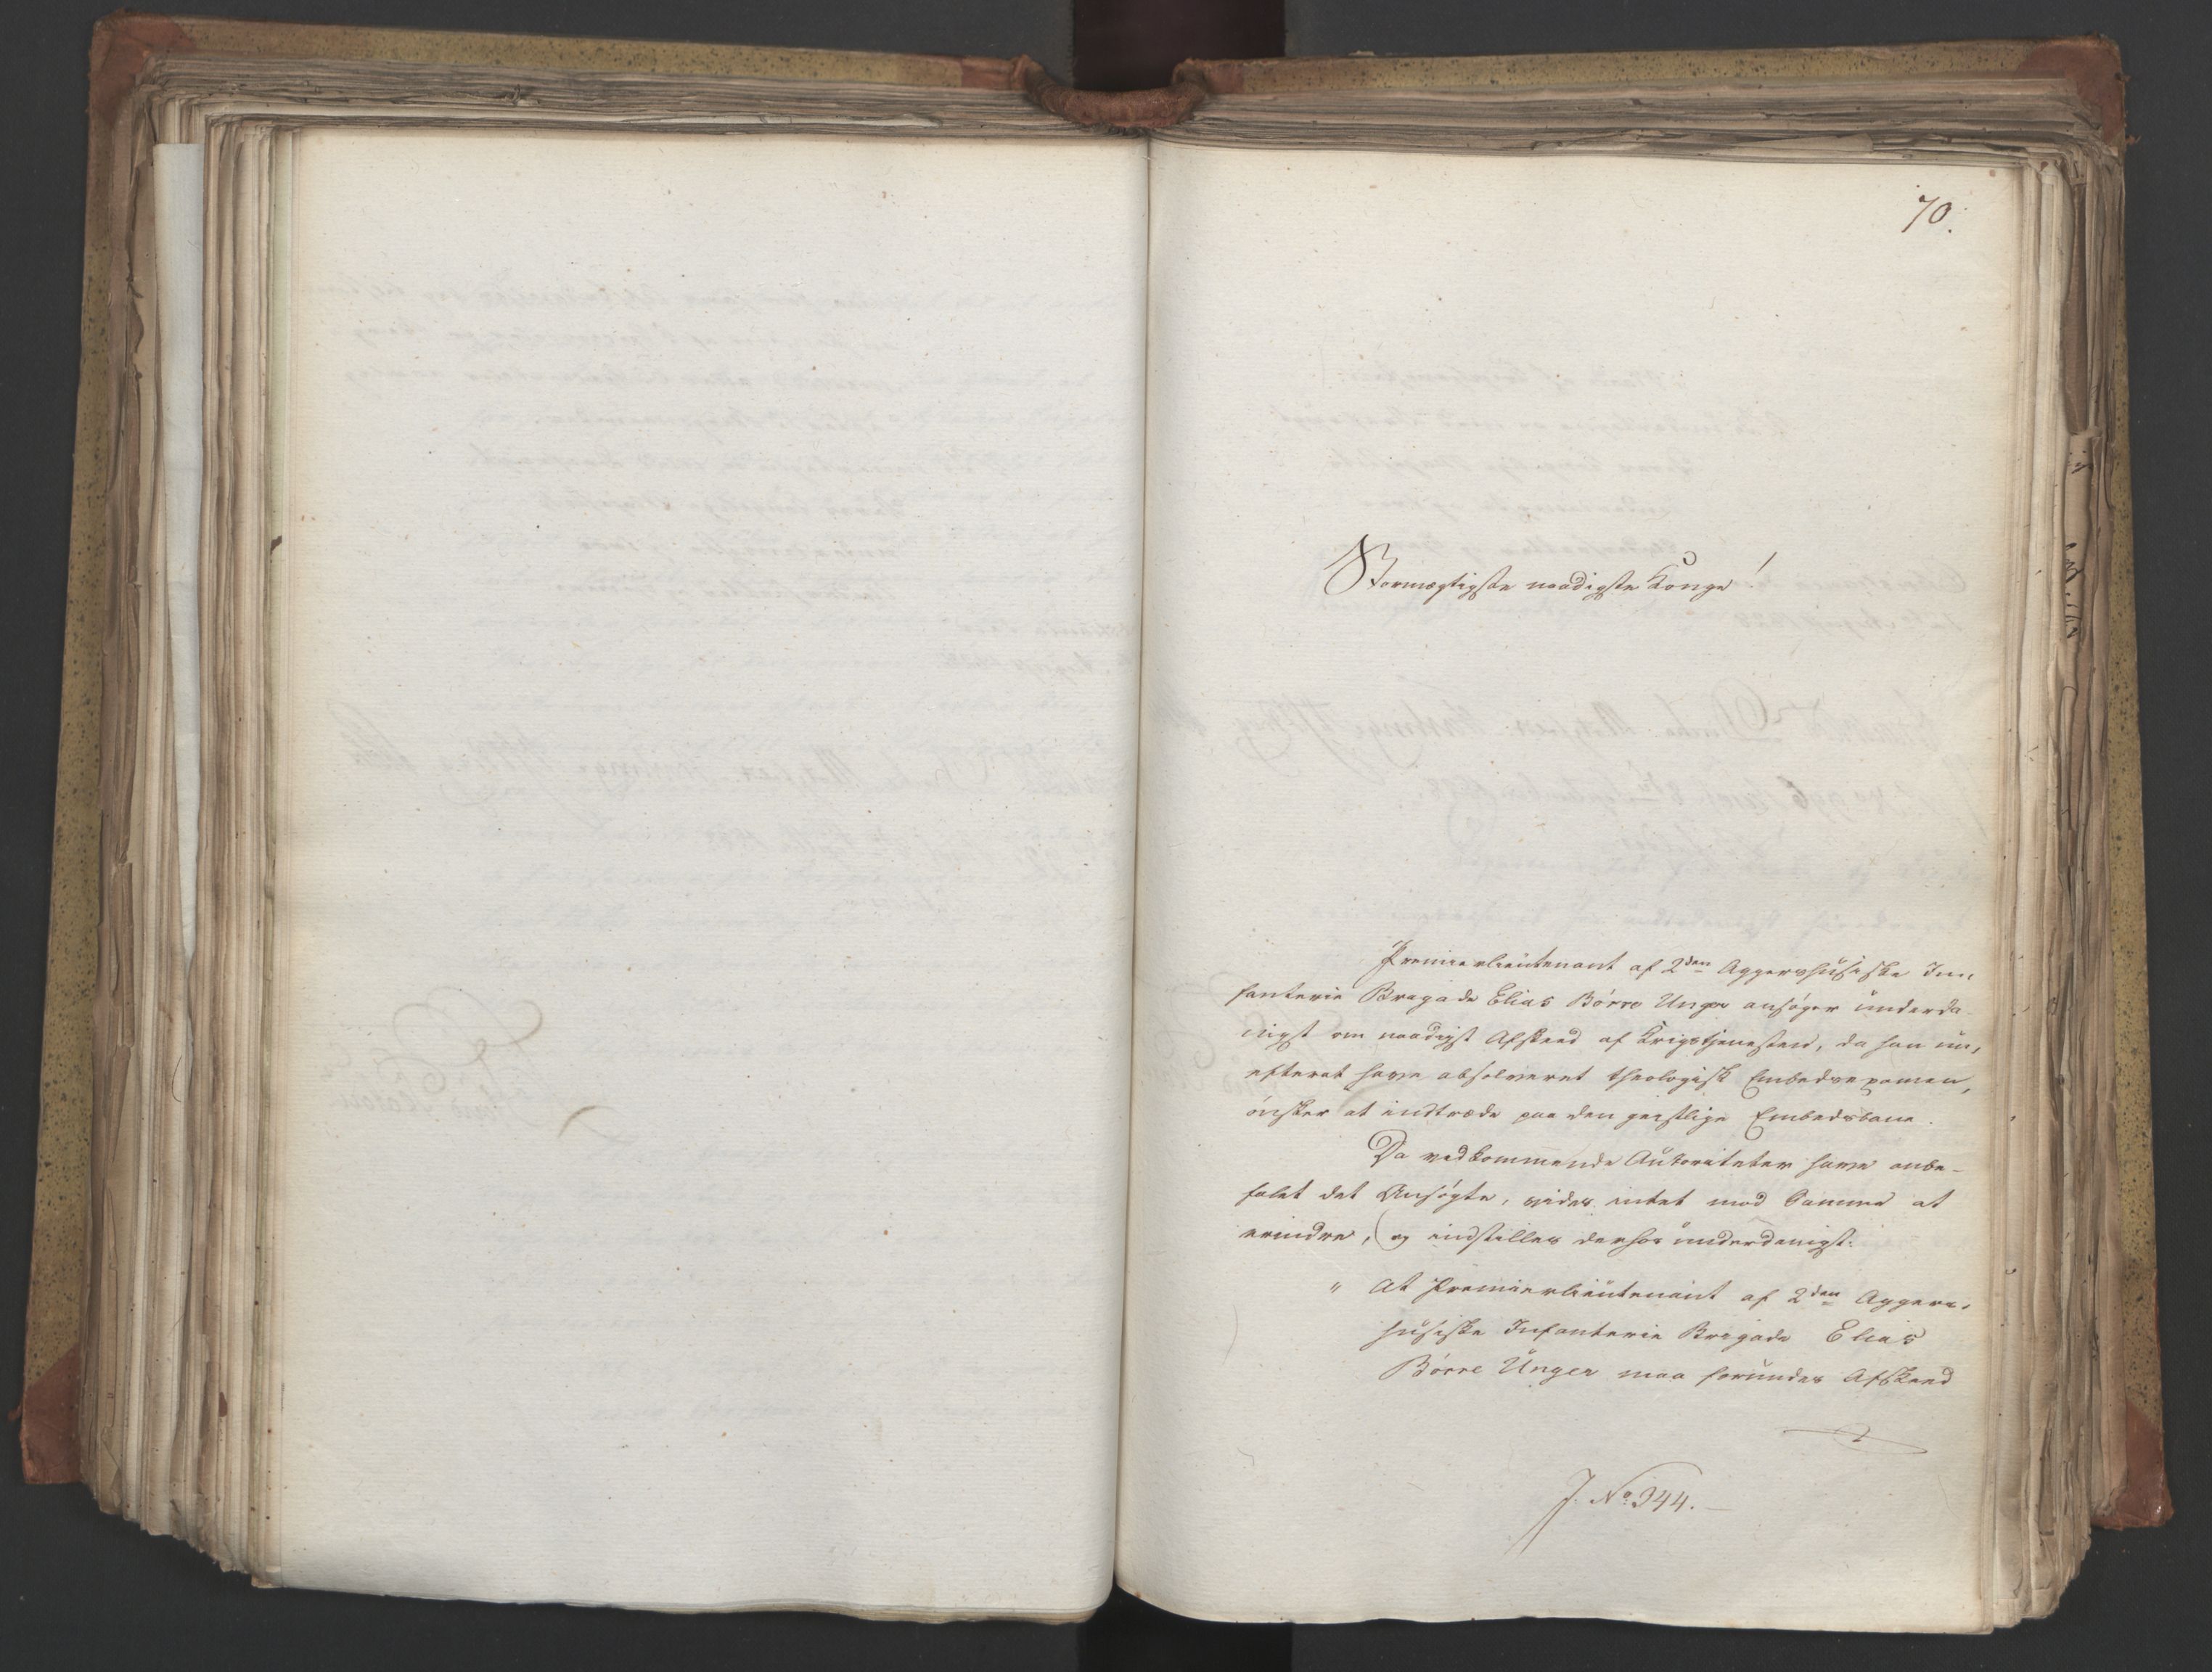 70.
Stormægtigste naadigste Konge!
Premierlieutenant af 2den Aggershusiske In,
fanterie Bragade Elias Börre Unger ansøger underda-
nigst om naadigst Afskeed af Krigstjenesten, da han nu,
efterat have absolveret theologisk Embedsexamen,
ønsker at indtræde paa den geistlige Embedsbane.
Da vedkommende Autoriteter have anbe-
falet det Ansøgte, vides intet mod Samme at
erindre, og indstilles derhos underdanigst:
" At Premierlieutenant af 2den Aggers,
husiske Infanterie Brigade Elias
Börre Unger maa forundes Afskeed
J. No. 944.